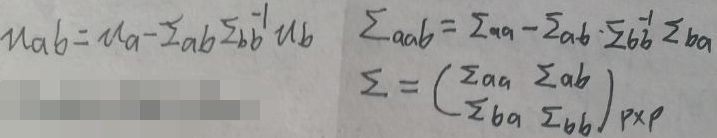 uab = ua - Σab Σbb⁻¹ ub
Σaab = Σaa - Σab · Σbb⁻¹ Σba
Σ = ( Σaa Σab
Σba Σbb ) p×p